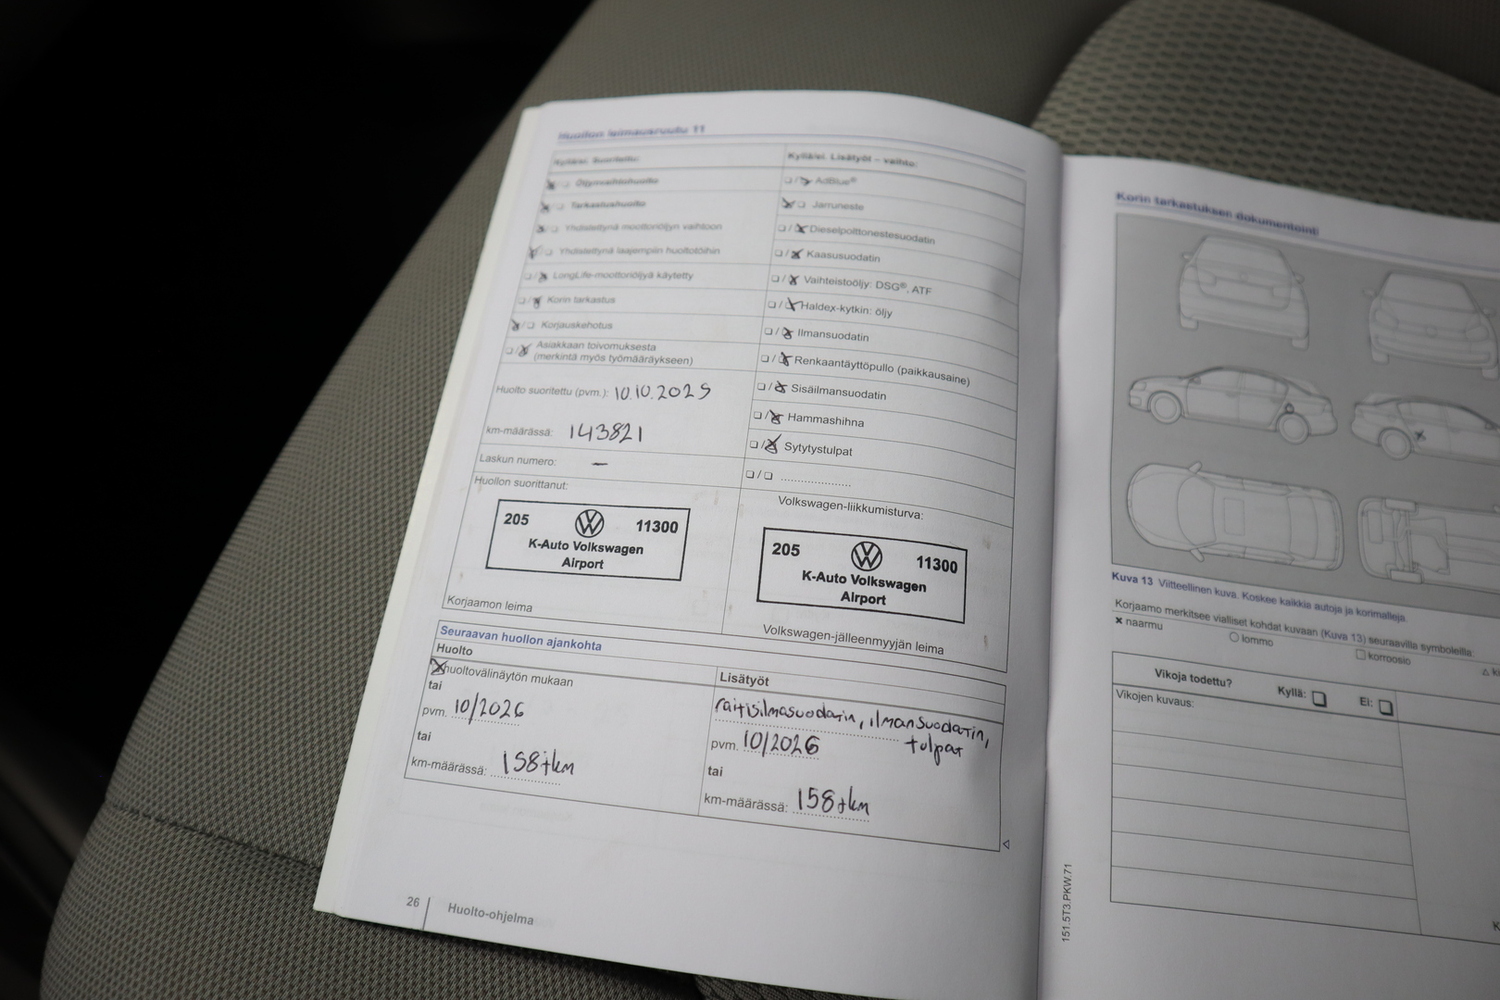 Huollon leimausruutu 11
Kyllä/ei. Suoritettu:
☒/☐ Öljynvaihtohuolto
☒/☐ Tarkastushuolto
☒/☐ Yhdistettynä moottoriöljyn vaihtoon
☒/☐ Yhdistettynä laajempiin huoltotöihin
☐/☒ LongLife-moottoriöljyä käytetty
☐/☒ Korin tarkastus
☒/☐ Korjauskehotus
☐/☒ Asiakkaan toivomuksesta
(merkintä myös työmääräykseen)
Huolto suoritettu (pvm.): 10.10.2025
km-määrässä: 143821
Laskun numero: –
Huollon suorittanut:
205 11300
K-Auto Volkswagen
Airport
Korjaamon leima
Kyllä/ei. Lisätyöt – vaihto:
☐/☒ AdBlue®
☒/☐ Jarruneste
☐/☒ Dieselpolttonestesuodatin
☐/☒ Kaasusuodatin
☐/☒ Vaihteistoöljy: DSG®, ATF
☐/☒ Haldex-kytkin: öljy
☐/☒ Ilmansuodatin
☐/☒ Renkaantäyttöpullo (paikkausaine)
☐/☒ Sisäilmansuodatin
☐/☒ Hammashihna
☐/☒ Sytytystulpat
☐/☐ ....................
Volkswagen-liikkumisturva:
205 11300
K-Auto Volkswagen
Airport
Volkswagen-jälleenmyyjän leima
Seuraavan huollon ajankohta
Huolto
☒ huoltovälinäytön mukaan
tai
pvm. 10/2026
tai
km-määrässä: 158tkm
Lisätyöt
raitisilmasuodatin, ilmansuodatin,
tulpat
pvm. 10/2026
tai
km-määrässä: 158tkm
26 Huolto-ohjelma
Korin tarkastuksen dokumentointi
Kuva 13 Viitteellinen kuva. Koskee kaikkia autoja ja korimalleja.
Korjaamo merkitsee vialliset kohdat kuvaan (Kuva 13) seuraavilla symboleilla:
× naarmu ○ lommo □ korroosio △ ki
Vikoja todettu? Kyllä: ☐ Ei: ☐
Vikojen kuvaus:
K
151.5T3.PKW.71